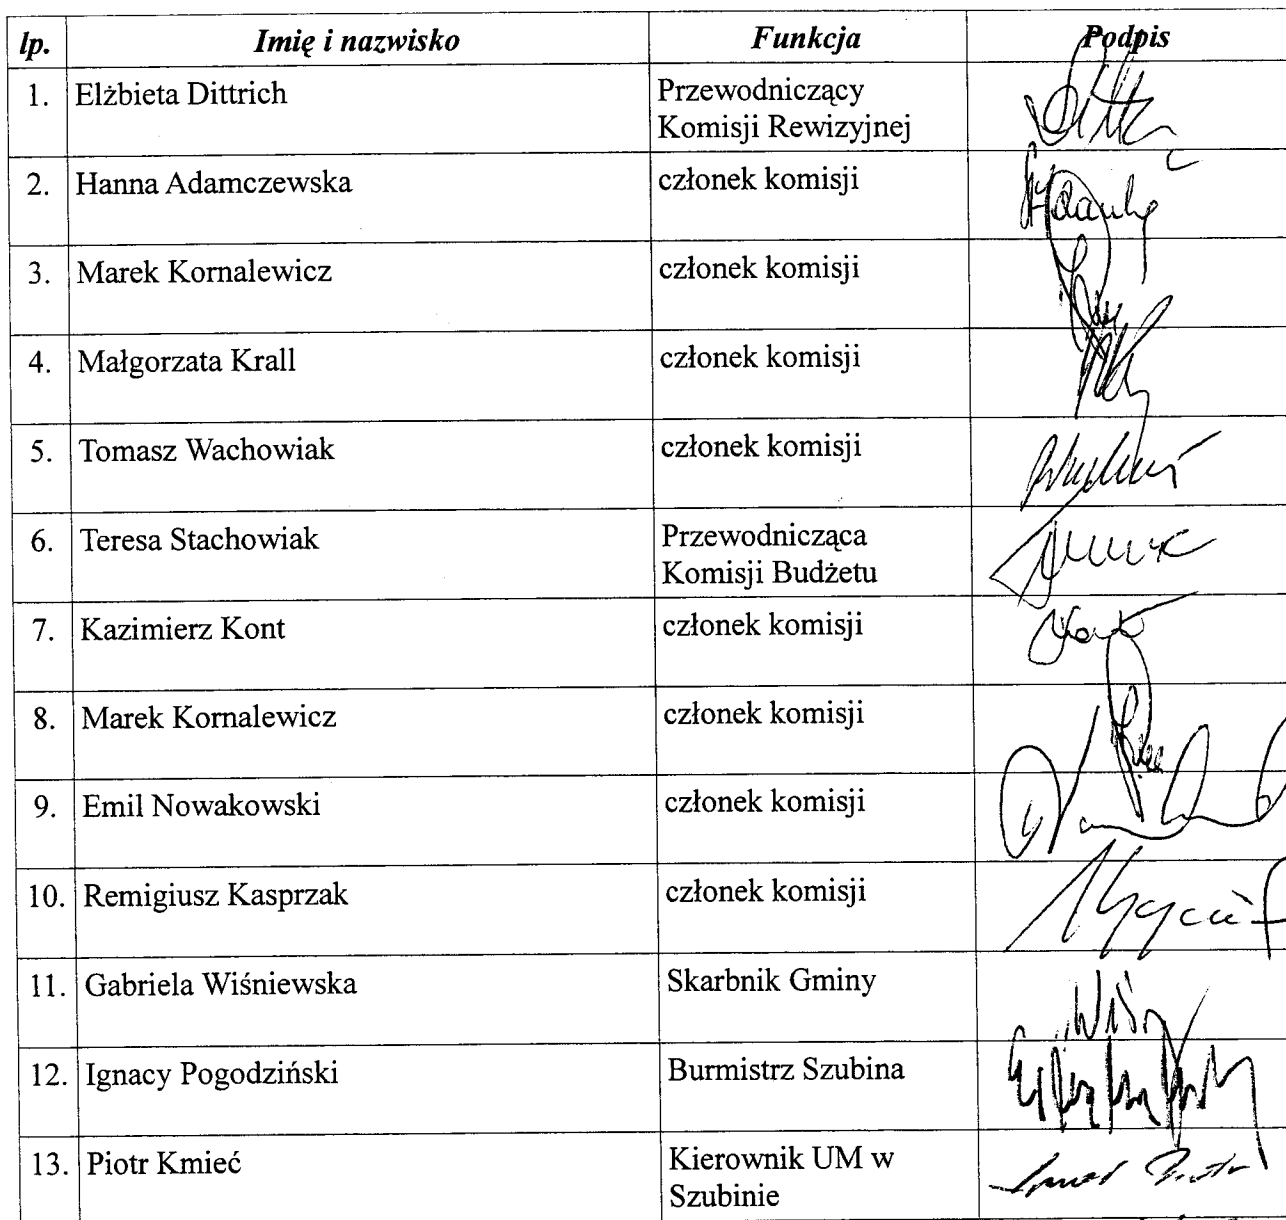 lp. Imię i nazwisko Funkcja Podpis
1. Elżbieta Dittrich Przewodniczący
Komisji Rewizyjnej
2. Hanna Adamczewska członek komisji
3. Marek Kornalewicz członek komisji
4. Małgorzata Krall członek komisji
5. Tomasz Wachowiak członek komisji
6. Teresa Stachowiak Przewodnicząca
Komisji Budżetu
7. Kazimierz Kont członek komisji
8. Marek Kornalewicz członek komisji
9. Emil Nowakowski członek komisji
10. Remigiusz Kasprzak członek komisji
11. Gabriela Wiśniewska Skarbnik Gminy
12. Ignacy Pogodziński Burmistrz Szubina
13. Piotr Kmieć Kierownik UM w
Szubinie